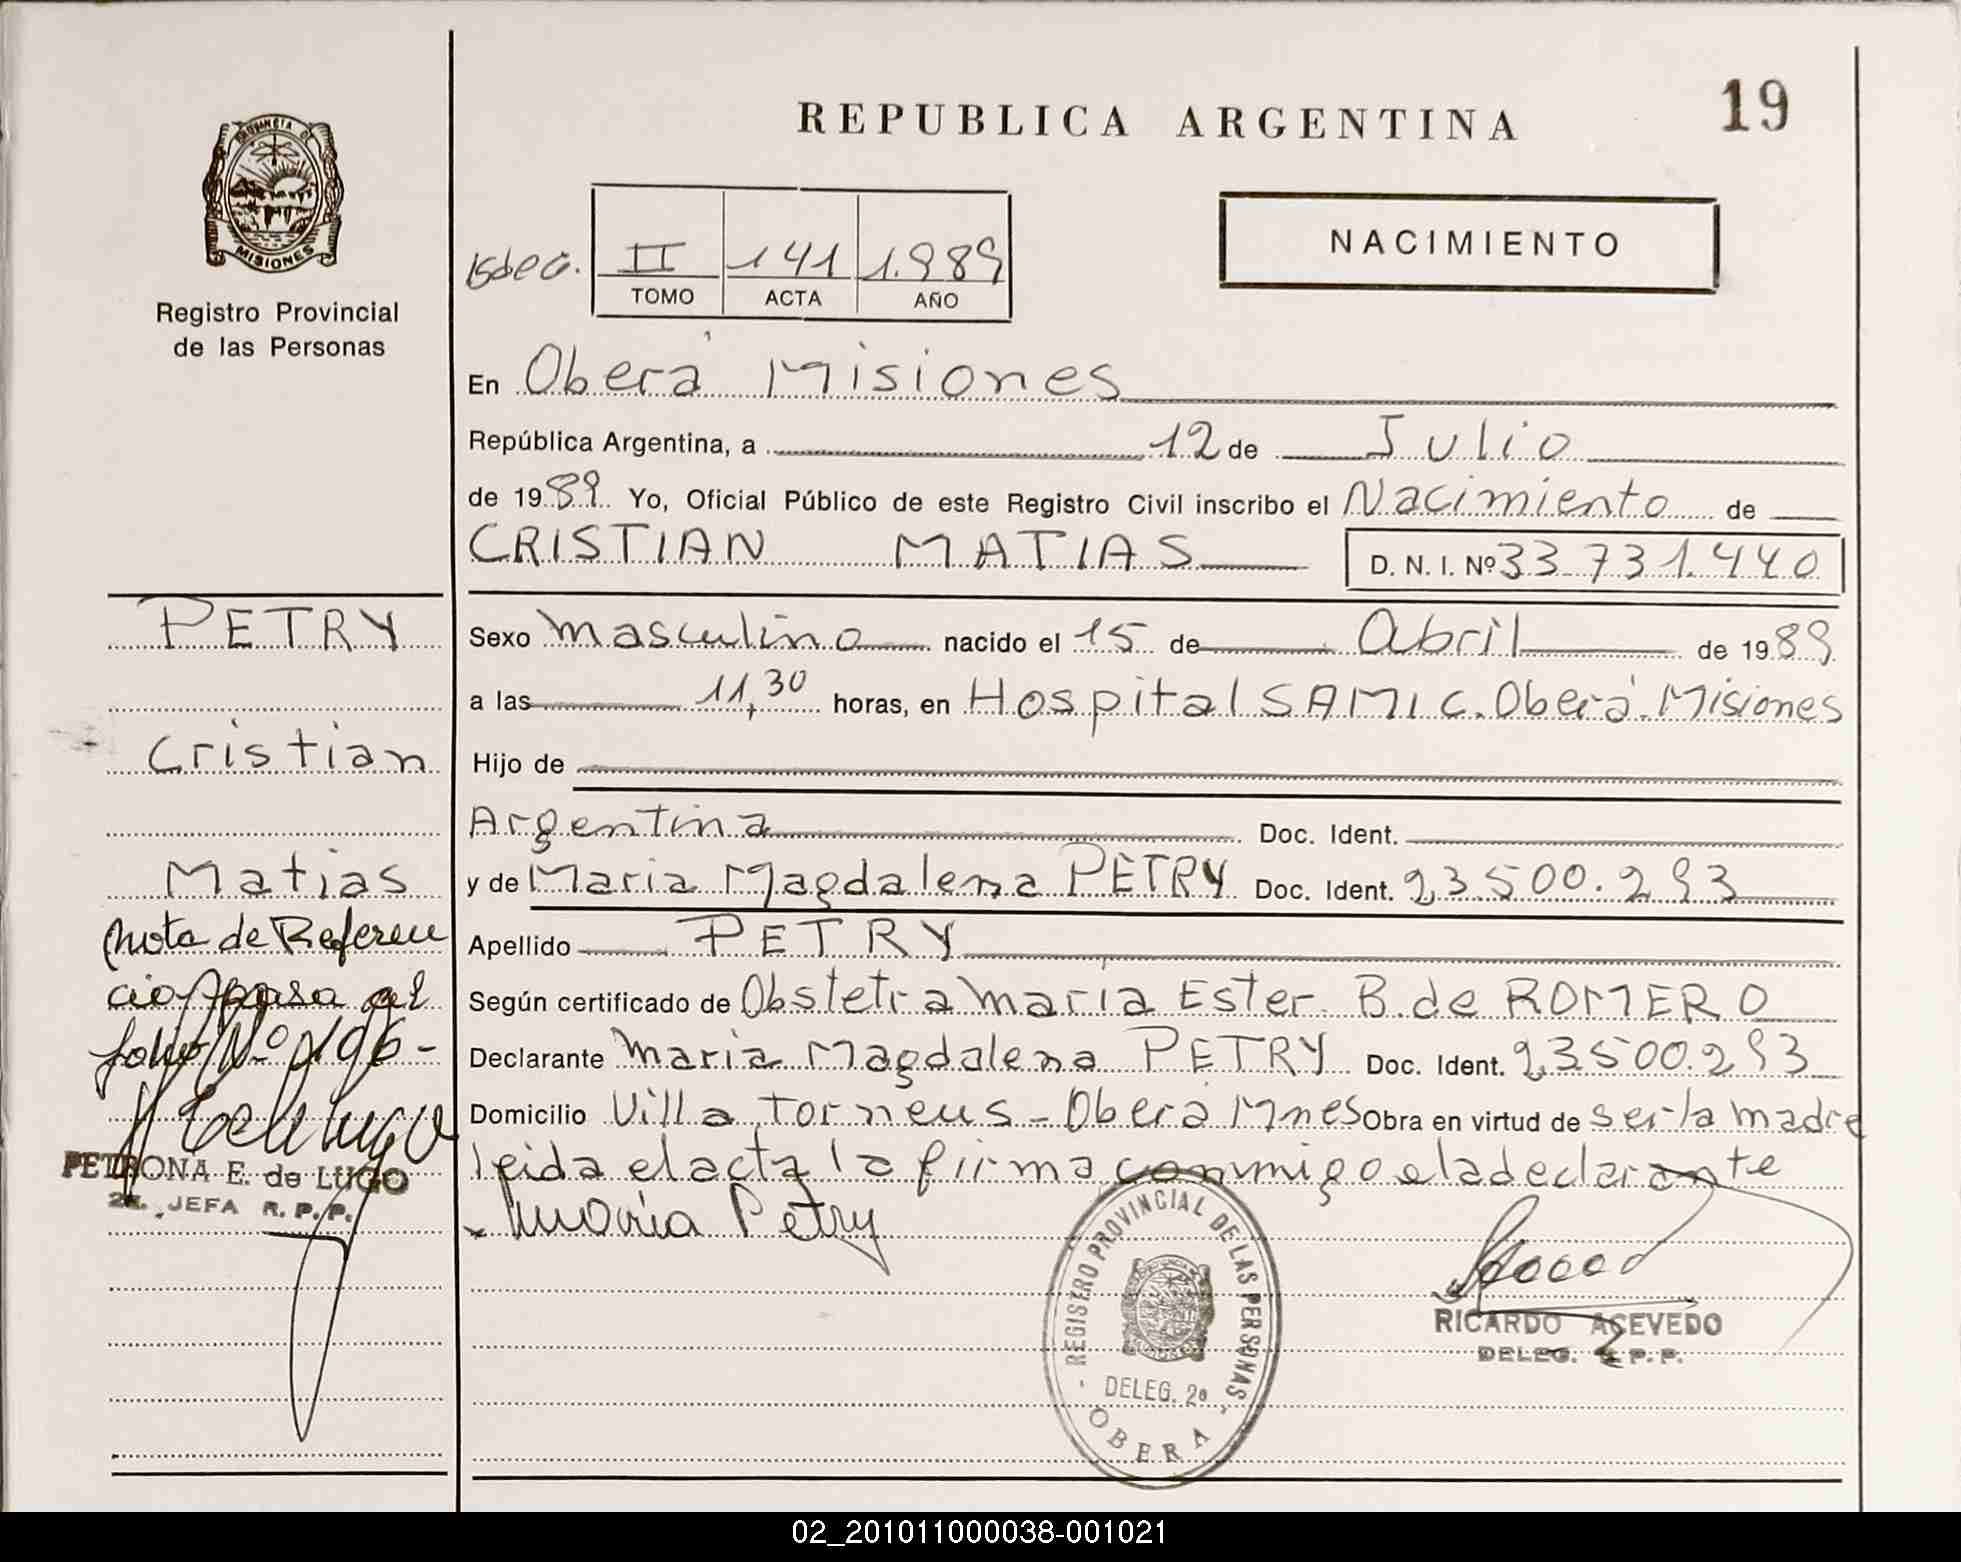 REPUBLICA ARGENTINA
19
PROVINCIA DE
MISIONES
Registro Provincial
de las Personas
NACIMIENTO
II 141 1.989
TOMO ACTA AÑO
En Oberá Misiones
República Argentina, a 12 de Julio
de 1989 Yo, Oficial Público de este Registro Civil inscribo el Nacimiento de
CRISTIAN MATIAS D. N. I. Nº 33.731.440
PETRY
Cristian
Matias
Nota de Referen
cia pasa al
folio Nº 196-
PETRONA E. de LUGO
2a. JEFA R. P. P.
Sexo masculino nacido el 15 de Abril de 1989
a las 11,30 horas, en Hospital SAMIC. Oberá. Misiones
Hijo de
Argentina Doc. Ident.
y de Maria Magdalena PETRY Doc. Ident. 23.500.293
Apellido PETRY
Según certificado de Obstetra Maria Ester B. de ROMERO
Declarante Maria Magdalena PETRY Doc. Ident. 23.500.293
Domicilio Villa Torneus - Oberá Mnes Obra en virtud de ser la madre
leida el acta la firma conmigo el a declarante
Maria Petry
REGISTRO PROVINCIAL DE LAS PERSONAS
DELEG. 2a
OBERA
RICARDO ACEVEDO
DELEG. R. P. P.
02_201011000038-001021